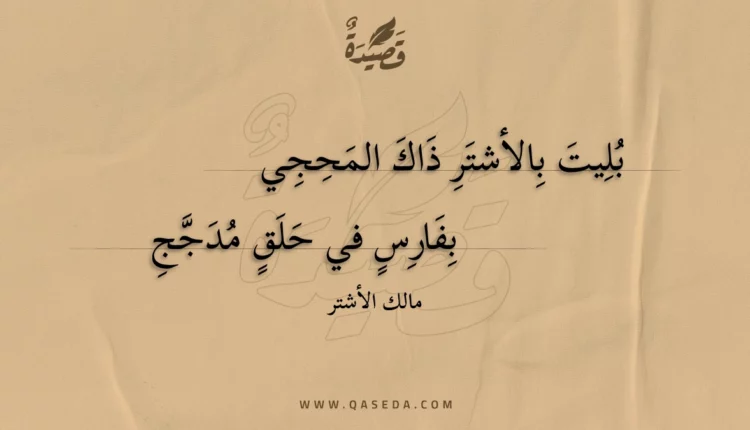 قَصِيدَةٌ
بُلِيتَ بِالأشتَرِ ذَاكَ المَحِجِي
بِفَارِسٍ في حَلَقٍ مُدَجَّجِ
مالك الأشتر
WWW.QASEDA.COM